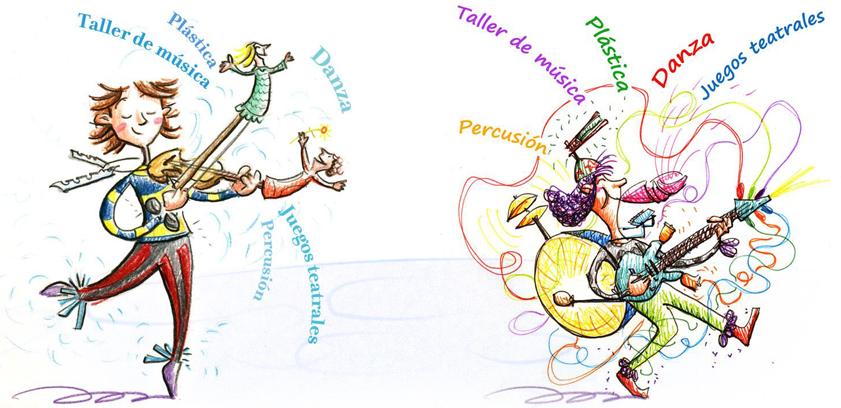 Taller de música
Plástica
Danza
Juegos teatrales
Percusión
Taller de música
Plástica
Danza
Juegos teatrales
Percusión